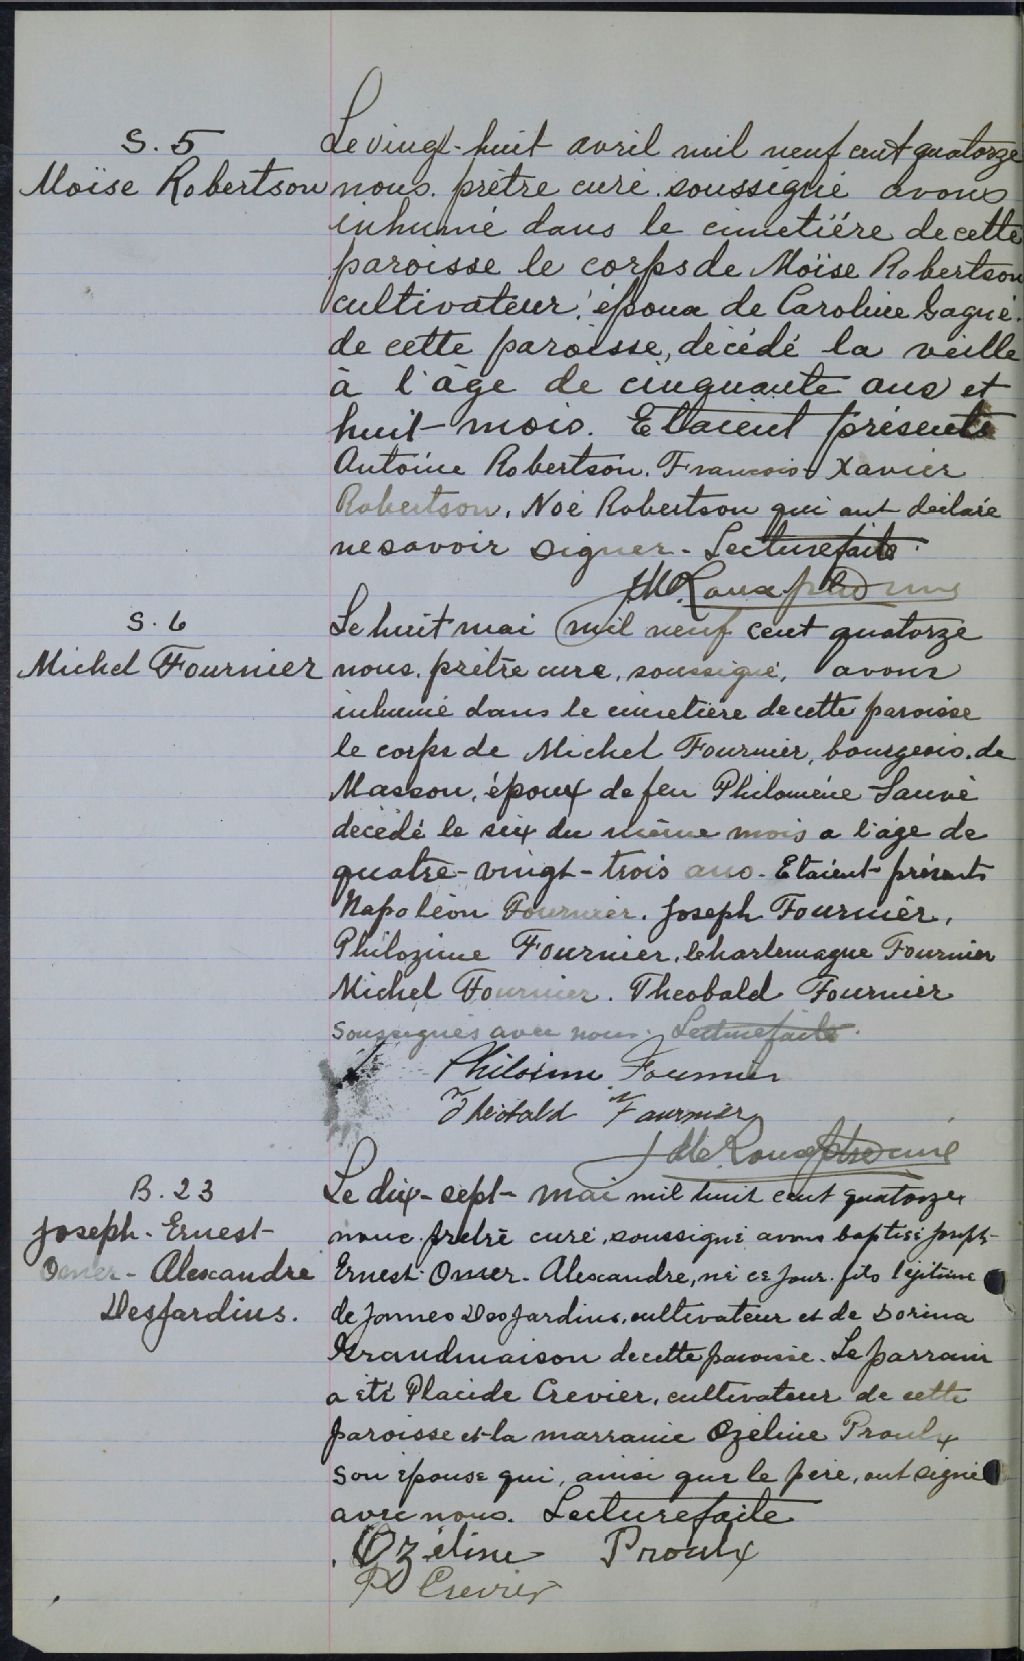 S. 5
Moïse Robertson
Le vingt-huit avril mil neuf cent quatorze
nous. prêtre curé. soussigné avons
inhumé dans le cimetiére de cette
paroisse le corps de Moïse Robertson
cultivateur, époux de Caroline Gagné.
de cette paroisse, décédé la veille
à l'âge de cinquante ans et
huit-mois. Etaient présents
Antoine Robertson. Francois Xavier
Robertson, Noé Robertson qui ont déclaré
ne savoir signer - Lecture faite.
S. 6
Michel Fournier
Le huit mai mil neuf cent quatorze
nous. prêtre curé, soussigné, avons
inhumé dans le cimetière de cette paroisse
le corps de Michel Fournier, bourgeois. de
Masson, époux de feu Philomène Sauvé
décédé le six du même mois a l'âge de
quatre-vingt-trois ans. Etaient présents
Napoléon Fournier. Joseph Fournier,
Philozime Fournier, Charlemagne Fournier
Michel Fournier. Theobald Fournier
soussignés avec nous. Lecture faite.
Philoime Fournier
Théobald Fournier
B. 23
Joseph-Ernest-
Omer-Alexandre
DesJardins.
Le dix-sept-mai mil huit cent quatorze
nous prêtre curé, soussigné avons baptisé Joseph-
Ernest-Omer-Alexandre, né ce jour. fils légitime
de James DesJardins, cultivateur et de Dorina
Grandmaison de cette paroisse. Le parrain
a été Placide Crevier, cultivateur de cette
paroisse et la marraine Ozéline Proulx
son épouse qui, ainsi que le père, ont signé
avec nous. Lecture faite
Ozéline Proulx
P Crevier